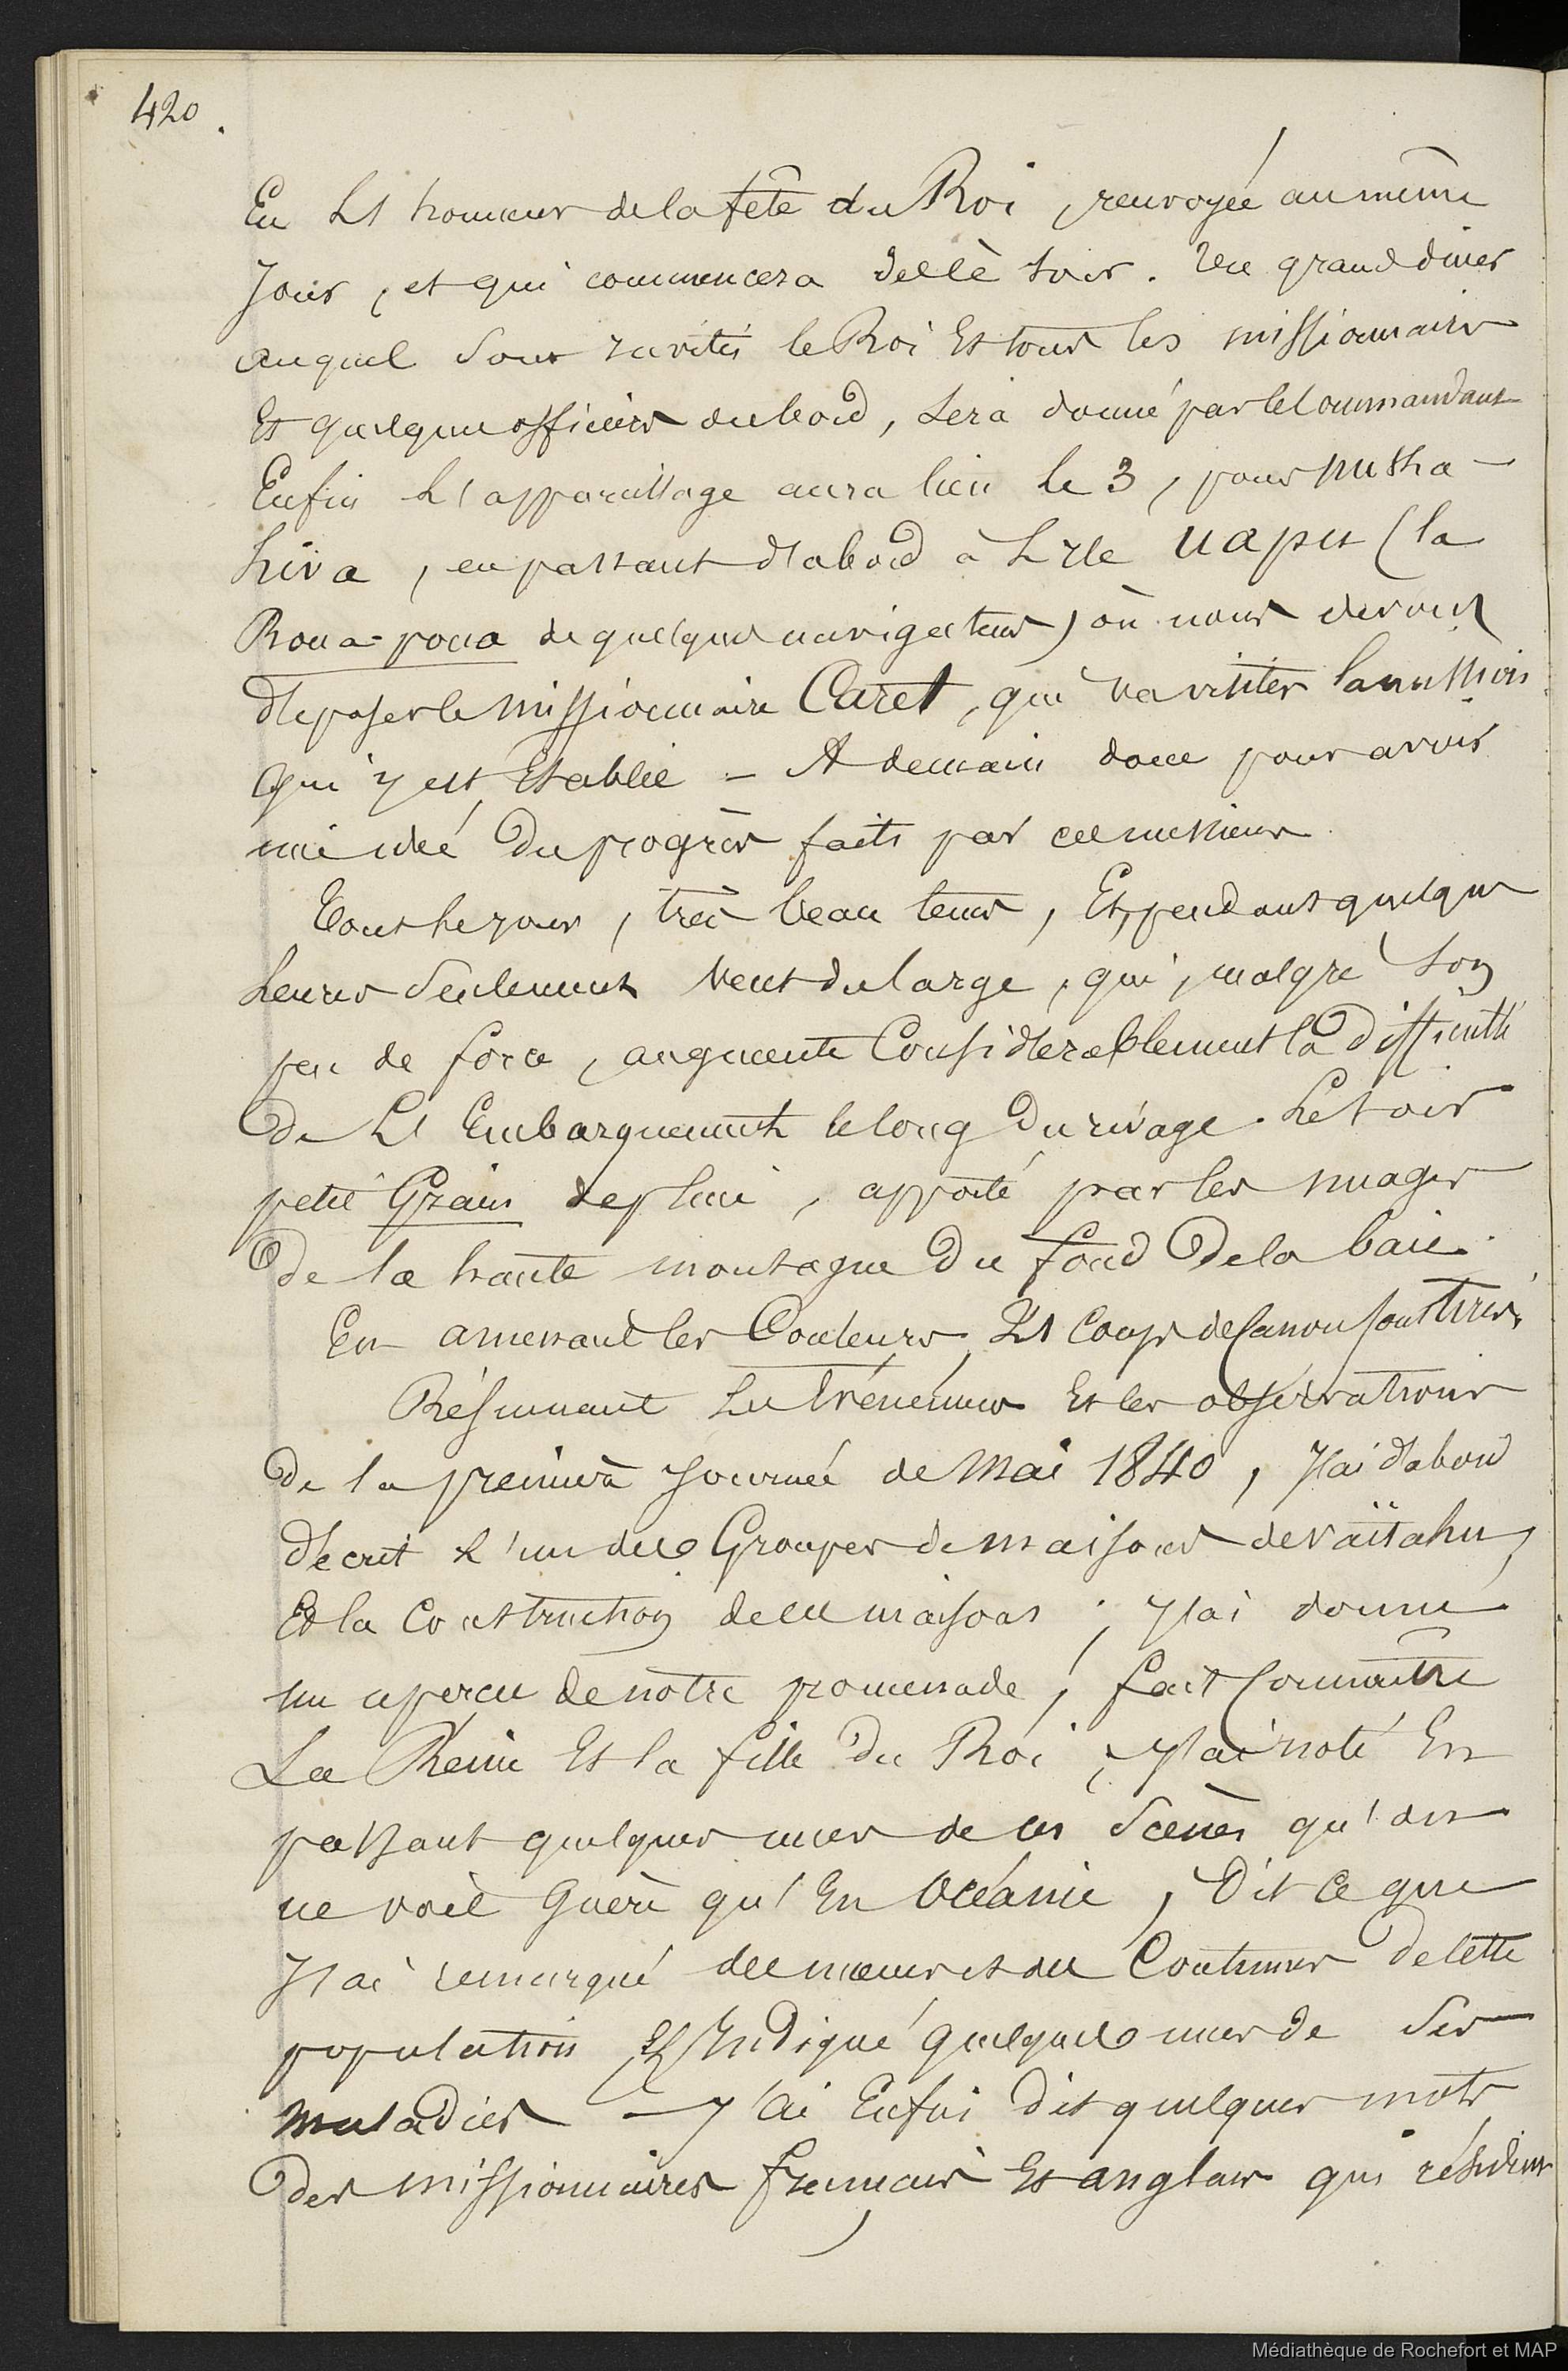 420.
En l'honneur de la fête du Roi, renvoyée au même
jour, et qui commencera dès le soir. Un grand diner
auquel sont invités le Roi et tous les missionnaires
et quelques officiers du bord, sera donné par le Commandant
Enfin l'appareillage aura lieu le 3, pour nuka-
hiva, en passant d'abord à l'île uapu (la
Roua-poua de quelques navigateurs) où nous devons
déposer le missionnaire Caret, qui va visiter la mission
qui y est Etablie - A demain donc pour avoir
une idée du progrès faits par ces messieurs.
Tout le jour, très beau tems, Et, pendant quelques
heures seulement vent du large, qui, malgré son
peu de force, augmente Considérablement la difficulté
de l'Embarquement le long du rivage. Le soir
petit Grain de pluie, apporté par les nuages
de la haute montagne du fond de la baie.
En amenant les Couleurs, 21 Coups de Canon sont tirés.
Résumant les Evénémens et les observations
de la première journée de Mai 1840, j'ai d'abord
décrit l'un des Groupes de maisons de Vaïtahu,
Et la Construction de ces maisons ; j'ai donné
un aperçu de notre promenade, fait Connaître
La Reine Et la fille du Roi ; j'ai noté En
passant quelques unes de ces Scènes qu'on
ne voit Guère qu'En Océanie, Dit ce que
j'ai remarqué des mœurs et des Coutumes de Cette
population Et Indiqué quelques unes de Ses
maladies — j'ai Enfin dit quelques mots
des missionnaires français Et anglais qui résident
Médiathèque de Rochefort et MAP